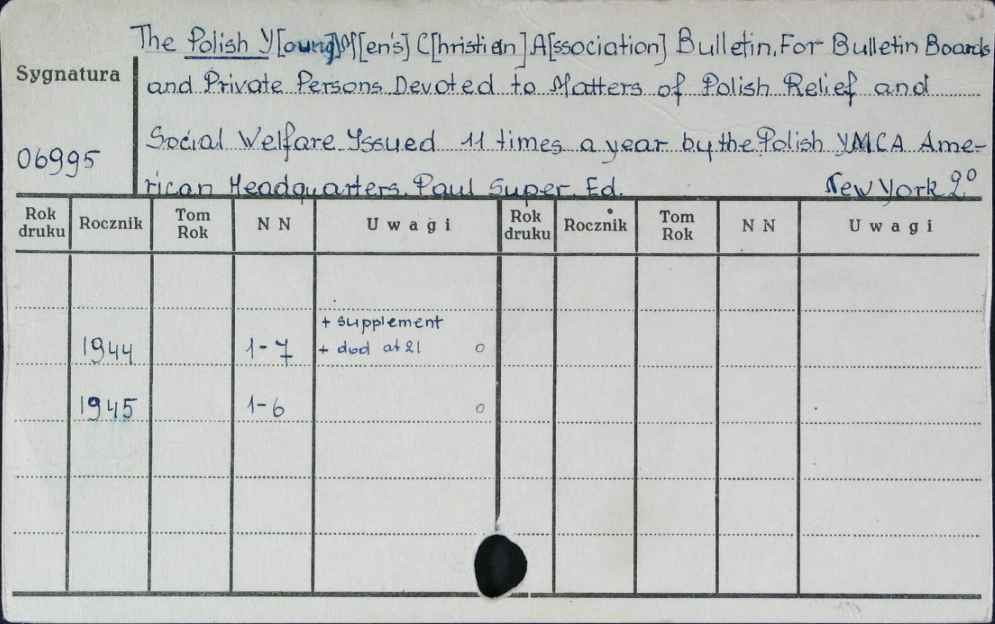 The Polish Y[oung]M[en's] C[hristian] A[ssociation] Bulletin, For Bulletin Boards
Sygnatura
and Private Persons Devoted to Matters of Polish Relief and
Social Welfare Issued 11 times a year by the Polish YMCA Ame-
06995
rican Headquarters. Paul Super Ed. New York 2°
Rok druku Rocznik Tom Rok N N Uwagi Rok druku Rocznik Tom Rok N N Uwagi
+ supplement
1944 1-7 + dod at 21 o
1945 1-6 o